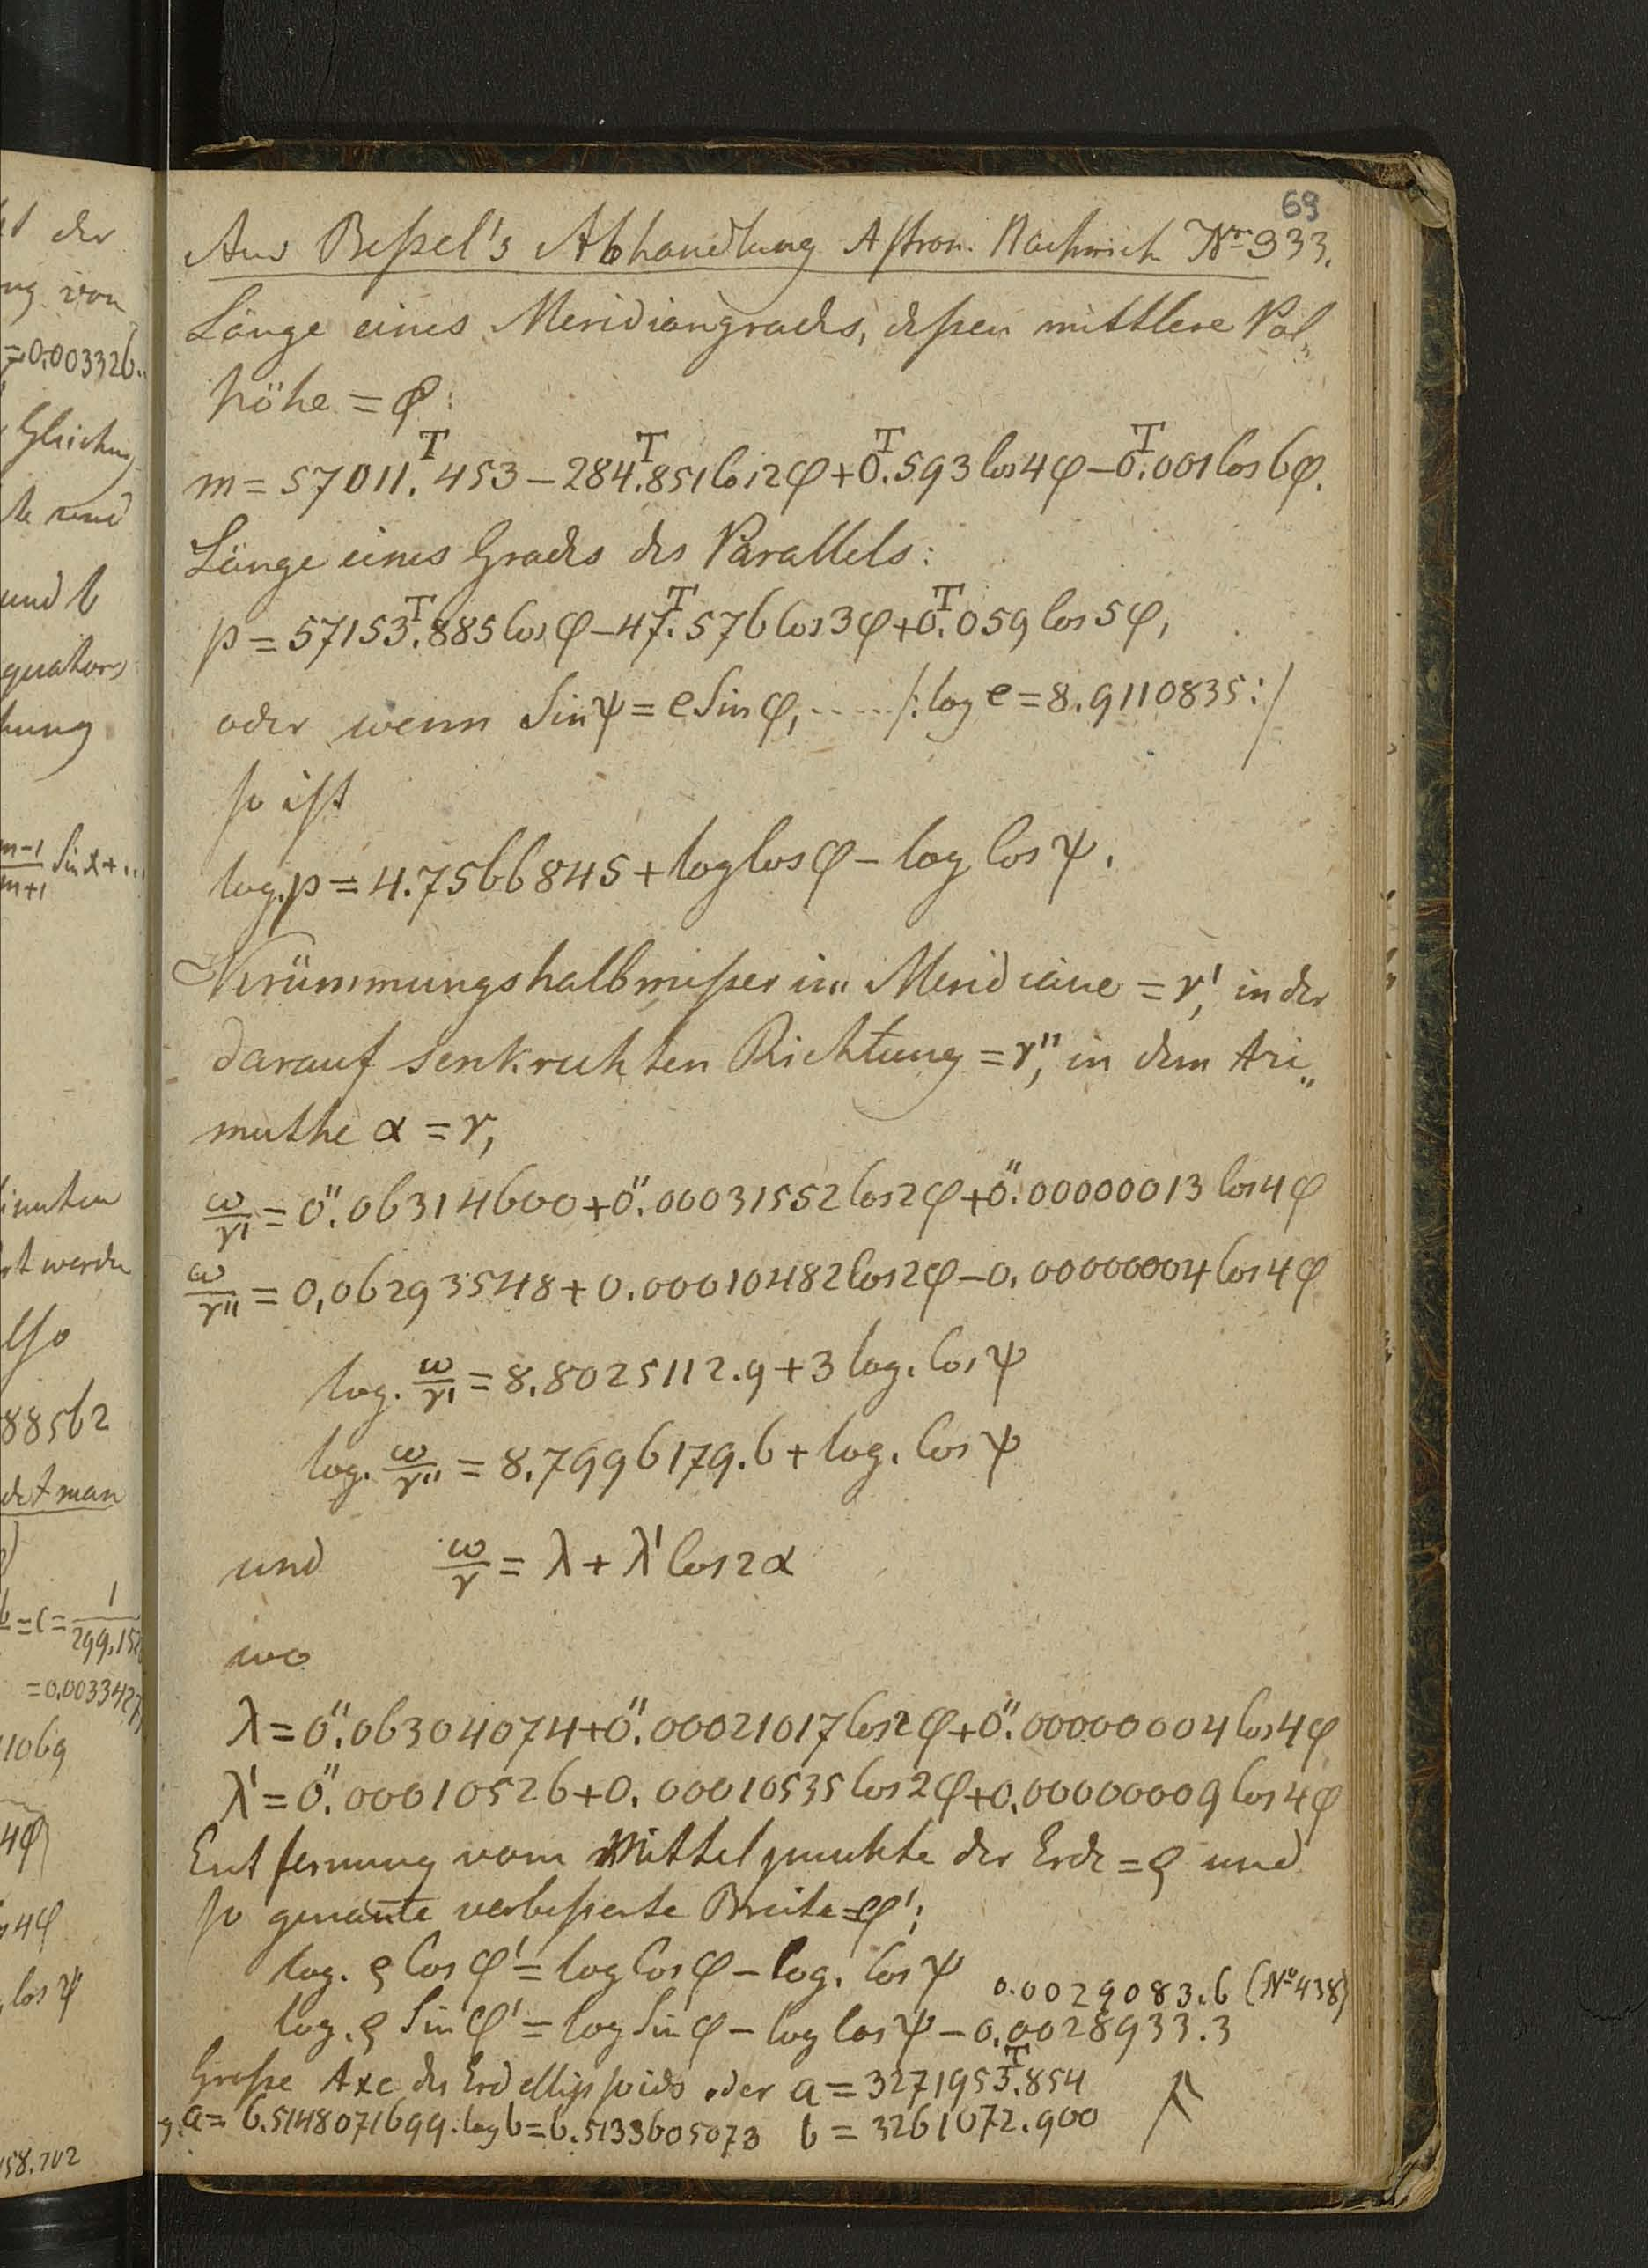 69
Aus Beßel's Abhandlung Astron. Nachrich Nr 333.
Länge eines Meridiangrades, deßen mittlere Pol„
höhe = φ:
m = 57011.ᵀ453 – 284.ᵀ851 Cos 2φ + 0.ᵀ593 Cos 4φ – 0.ᵀ001 Cos 6φ.
Länge eines Grades des Parallels:
p = 57153.ᵀ885 Cos φ – 47.ᵀ576 Cos 3φ + 0.ᵀ059 Cos 5φ,
oder wenn Sin ψ = e Sin φ, ..... /: log e = 8.9110835 :/
so ist
log. p = 4.7566845 + log Cos φ – log Cos ψ.
Krümmungshalbmeßer im Meridiane = r', in der
darauf senkrechten Richtung = r'', in dem Azi„
muthe α = r,
ω/r' = 0".06314600 + 0".00031552 Cos 2φ + 0".00000013 Cos 4φ
ω/r'' = 0,06293548 + 0.00010482 Cos 2φ – 0.00000004 Cos 4φ
log. ω/r' = 8.8025112.9 + 3 log. Cos ψ
log. ω/r'' = 8.7996179.6 + log. Cos ψ
und ω/r = λ + λ' Cos 2α
wo
λ = 0".06304074 + 0".00021017 Cos 2φ + 0".00000004 Cos 4φ
λ' = 0".00010526 + 0.00010535 Cos 2φ + 0.00000009 Cos 4φ
Entfernung vom Mittelpunkte der Erde = ρ und
so genañte verbeßerte Breite = φ';
log. ρ Cos φ' = log Cos φ – log. Cos ψ
0.0029083.6 (Nº 438)
log. ρ Sin φ' = log Sin φ – log Cos ψ – 0.0028933.3
Große Axe des Erdellipsoids oder a = 3271953.ᵀ854
g. a = 6.5148071699. log b = 6.5133605073 b = 3261072.900
t der
ng von
= 0.003326..
Gleichung
te und
und b
quators
hung
m-1/m+1 Sin α + ...
werden
also
88562
det man
= c = 1/299.152
= 0.0033427
11069
4φ
4φ
Cos ψ
158.702